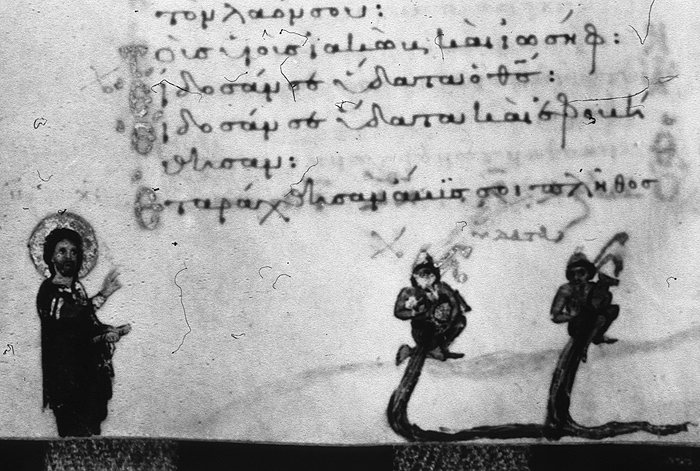 τὸν λαόν σου:
Τοὺς υἱοὺς ἰακὼβ καὶ ἰωσήφ:
Εἴδοσάν σε ὕδατα ὁ θς:
Εἴδοσάν σε ὕδατα καὶ ἐφοβή
θησαν:
Ἐταράχθησαν ἄβυσσοι πλῆθος